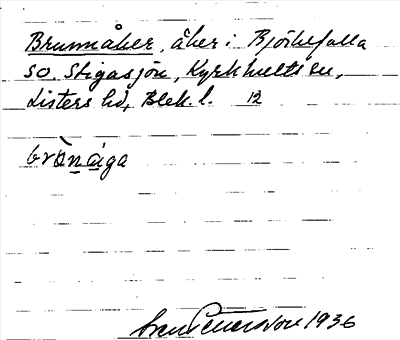 Brunnåker, åker i Björkefalla
SO. Stigasjön, Kyrkhults sn,
Listers hd, Blek. l. 12
brònåga
Sven Petersson 1936